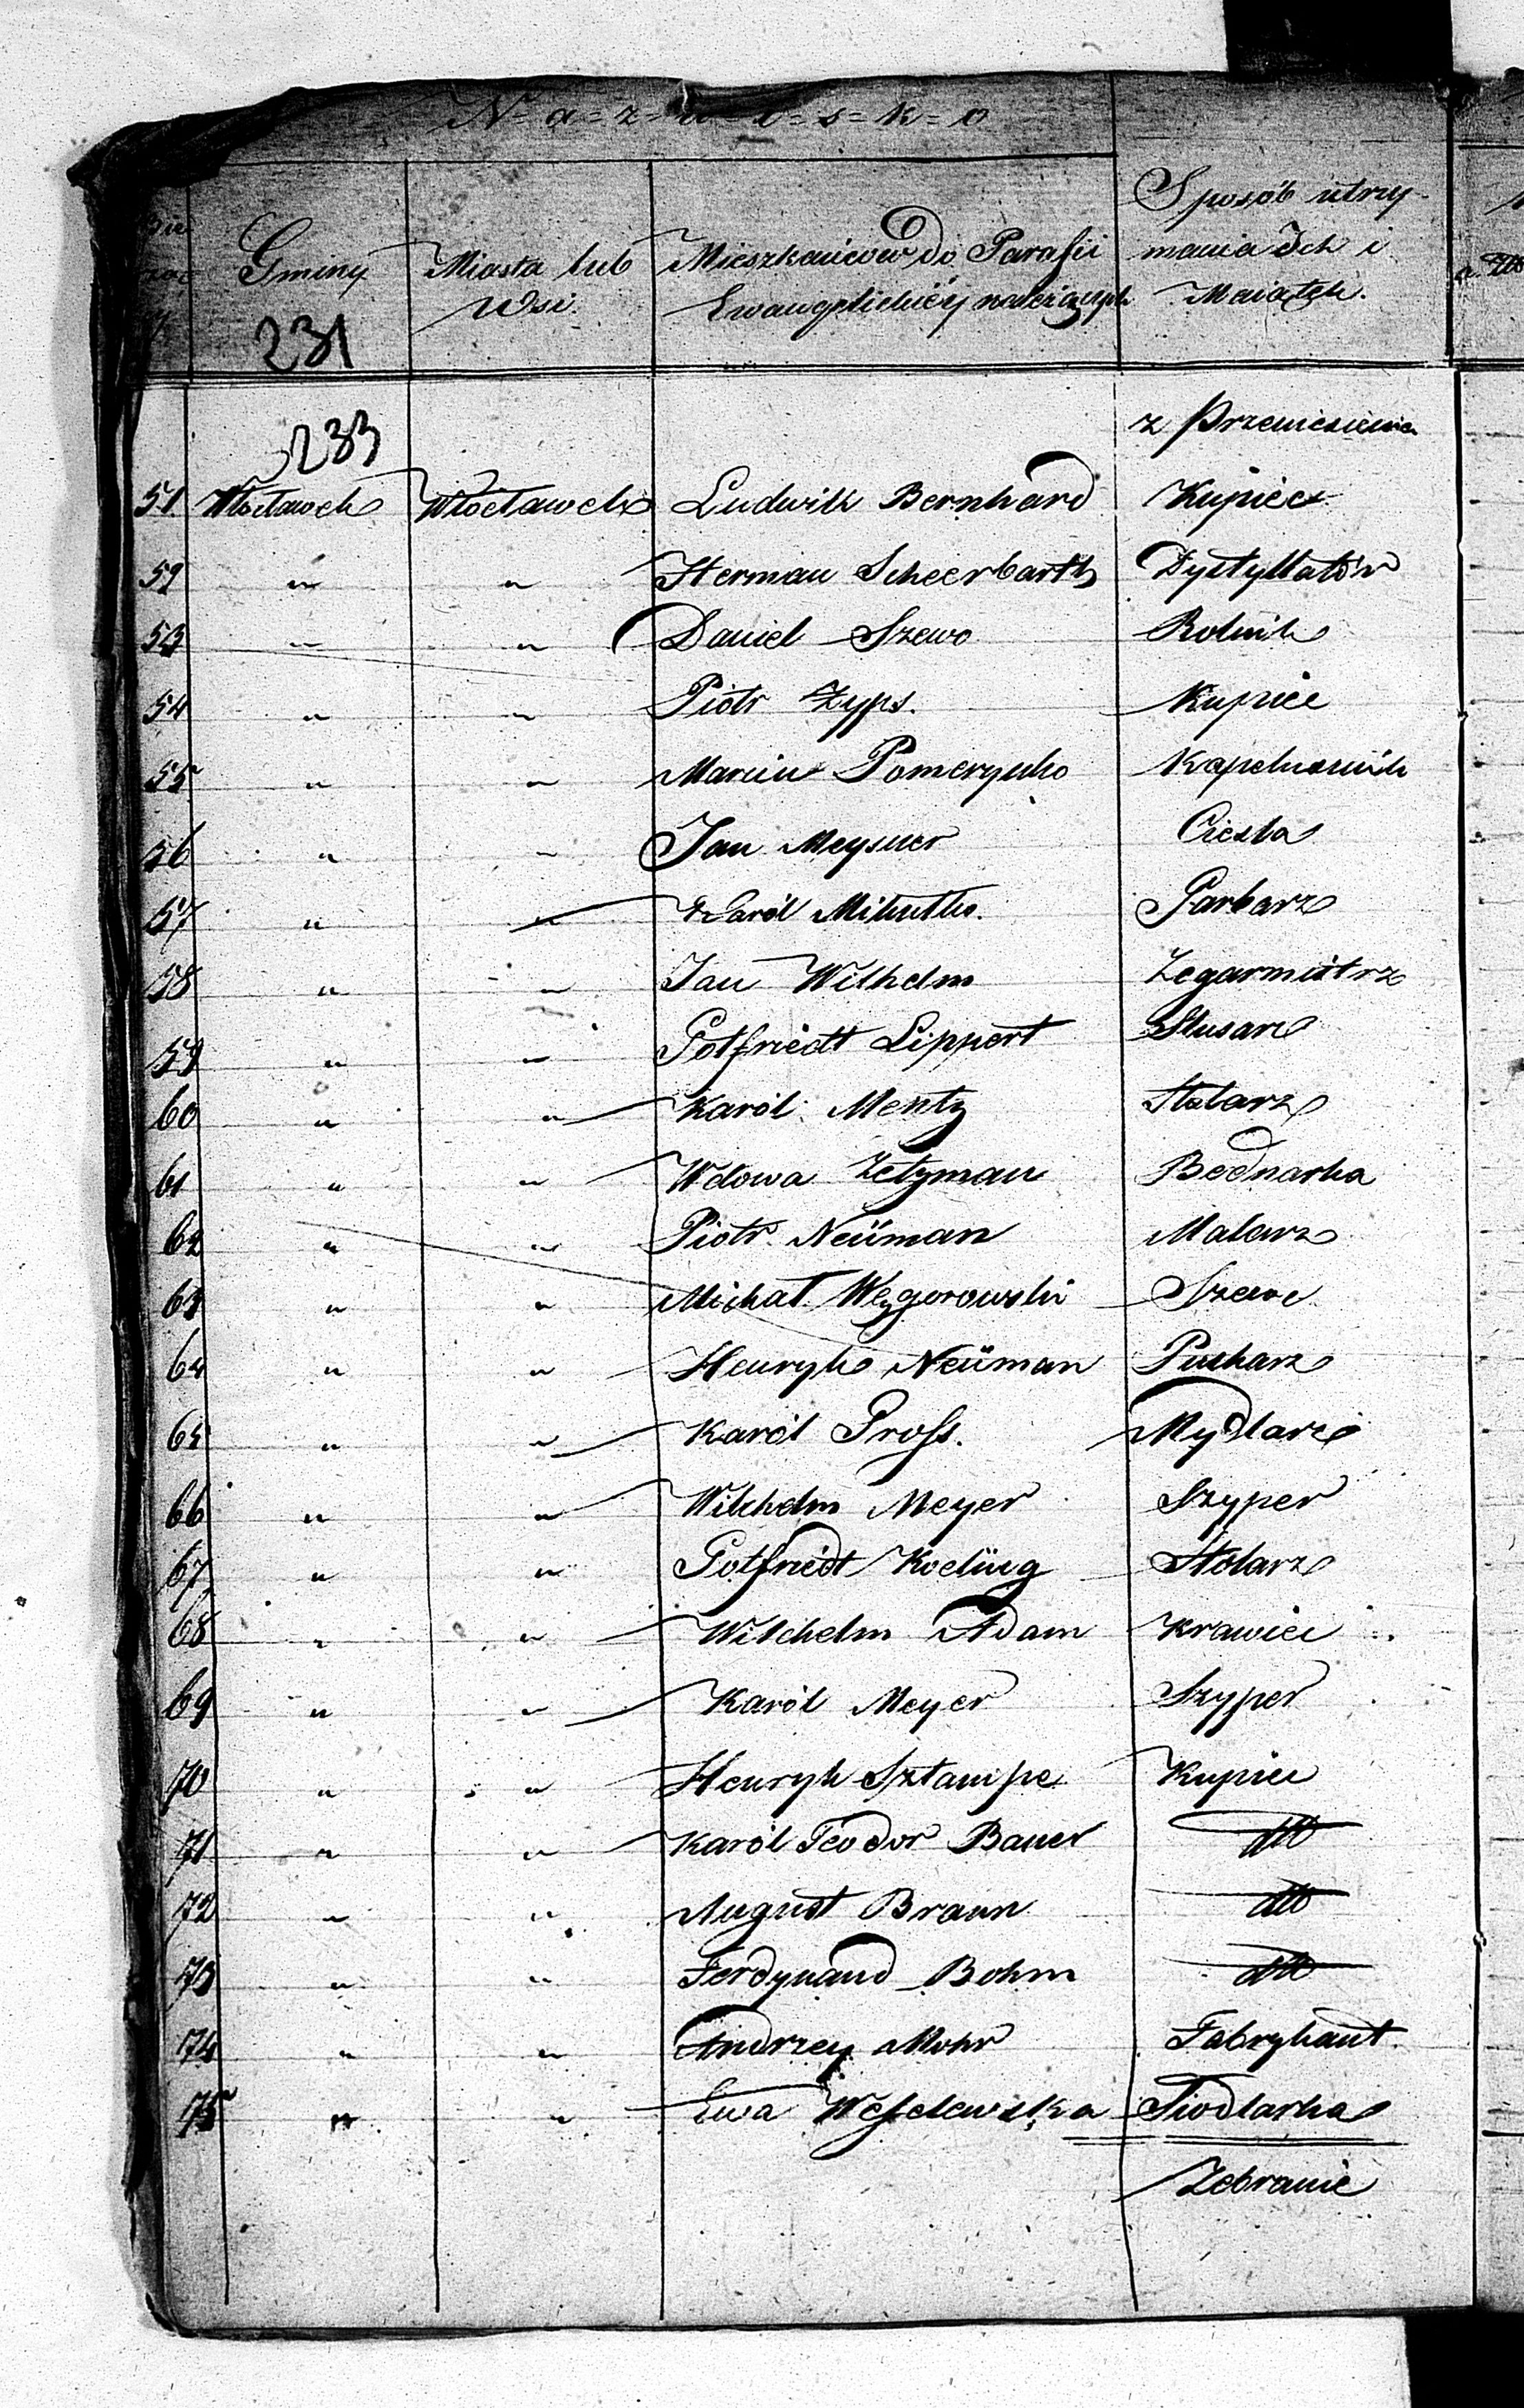 N=a=z=w=i=s=k=o
Gminy
Miasta lub
Wsi.
Mieszkańców do Parafii
Ewangelickiéy należących
Sposób utrzy-
mania Ich i
Maiątek.
231
z Przeniesienia
233
51. Włocławek Włocławek Ludwik Bernhard Kupiec
52 " " Herman Scheerbarth Dystyllatór
53 " " Daniel Szewo Rolnik
54 " " Piotr Zyps. Kupiec
55 " " Marcin Pomerynke Kapelusznik
56 " " Jan Meysner Cieśla
57 " " Karól Mikutke. Garbarz
58 " " Jan Wilhelm Zegarmistrz
59 " " Gotfriedt Lippert Slusarz
60 " " Karól Mentz Stolarz
61 " " Wdowa Zetzman Bednarka
62 " " Piotr Neüman Malarz
63 " " Michał Węgorowski Szewc
64 " " Henryk Neüman Puszkarz
65 " " Karól Pross. Mydlarz
66 " " Wilchelm Meyer Szyper
67 " " Gotfriedt Koeling Stolarz
68 " " Wilchelm Adam Krawiec
69 " " Karól Meyer Szyper
70 " " Henryk Sztampe Kupiec
71 " " Karól Teodor Bauer dtto
72 " " August Braun dtto
73 " " Ferdynand Bohm dtto
74 " " Andrzey Mohr Fabrykant.
75 " " Ewa Wesselewska Siodlarka
Zebranie